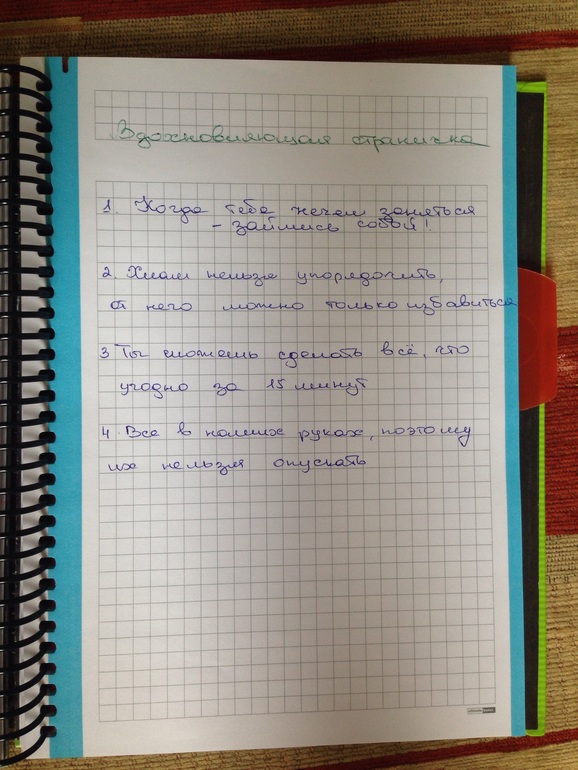 Вдохновляющая страничка
1. Когда тебе нечем заняться
- займись собой!
2. Хлам нельзя упорядочить,
от него можно только избавиться
3 Ты сможешь сделать всё, что
угодно за 15 минут
4. Все в наших руках, поэтому
их нельзя опускать